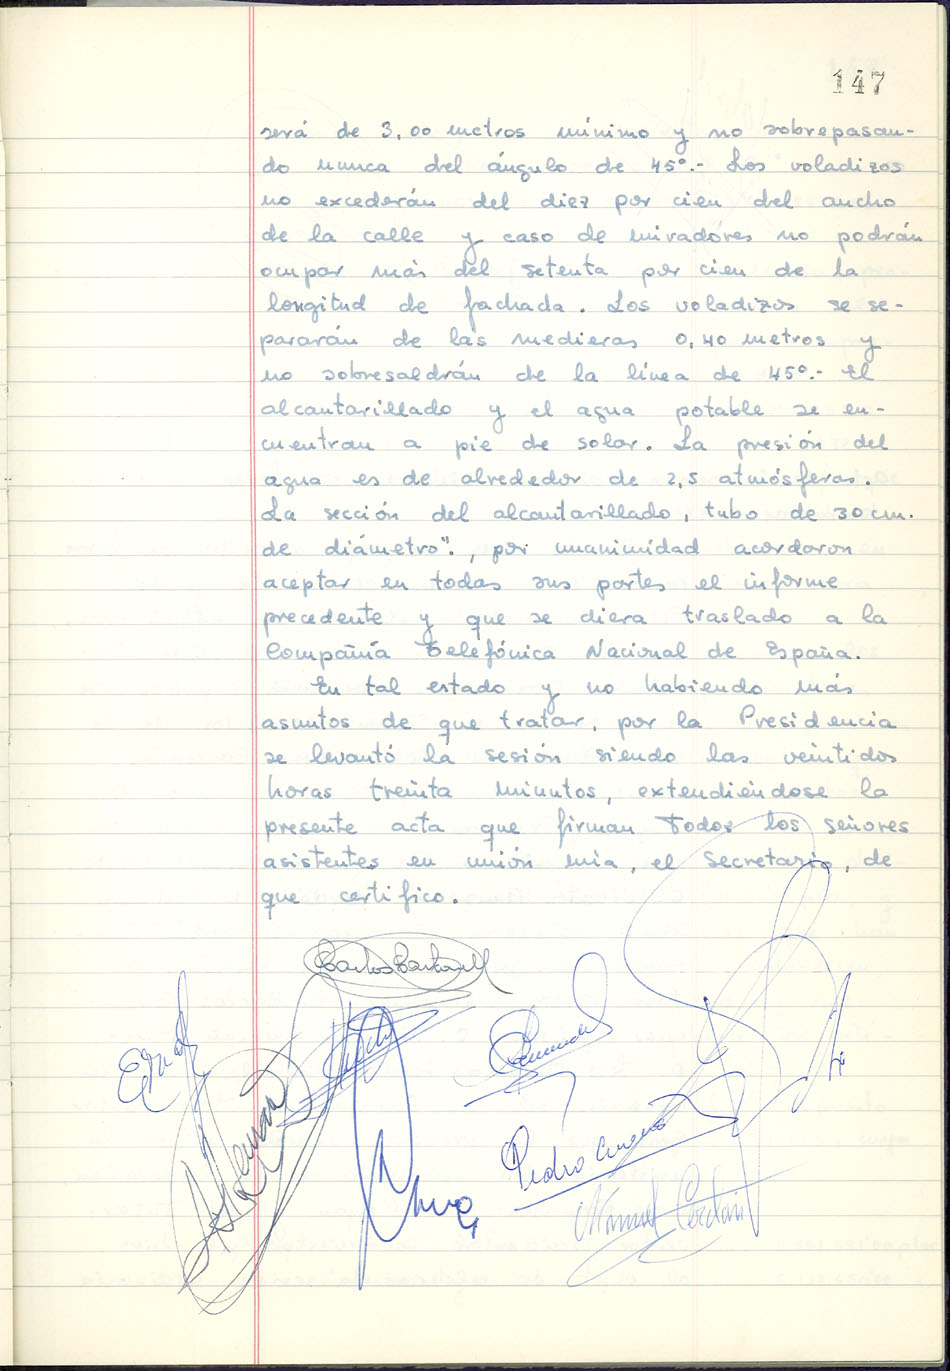 147
será de 3,00 metros mínimo y no sobrepasan-
do nunca del ángulo de 45º.- Los voladizos
no excederán del diez por cien del ancho
de la calle y caso de miradores no podrán
ocupar más del setenta por cien de la
longitud de fachada. Los voladizos se se-
pararán de las medieras 0,40 metros y
no sobresaldrán de la línea de 45º.- El
alcantarillado y el agua potable se en-
cuentran a pie de solar. La presión del
agua es de alrededor de 2,5 atmósferas.
La sección del alcantarillado, tubo de 30 cm.
de diámetro"., por unanimidad acordaron
aceptar en todas sus partes el informe
precedente y que se diera traslado a la
Compañía Telefónica Nacional de España.
En tal estado y no habiendo más
asuntos de que tratar, por la Presidencia
se levantó la sesión siendo las veintidos
horas treinta minutos, extendiéndose la
presente acta que firman todos los señores
asistentes en unión mía, el Secretario, de
que certifico.
Carlos
Pedro
Manuel